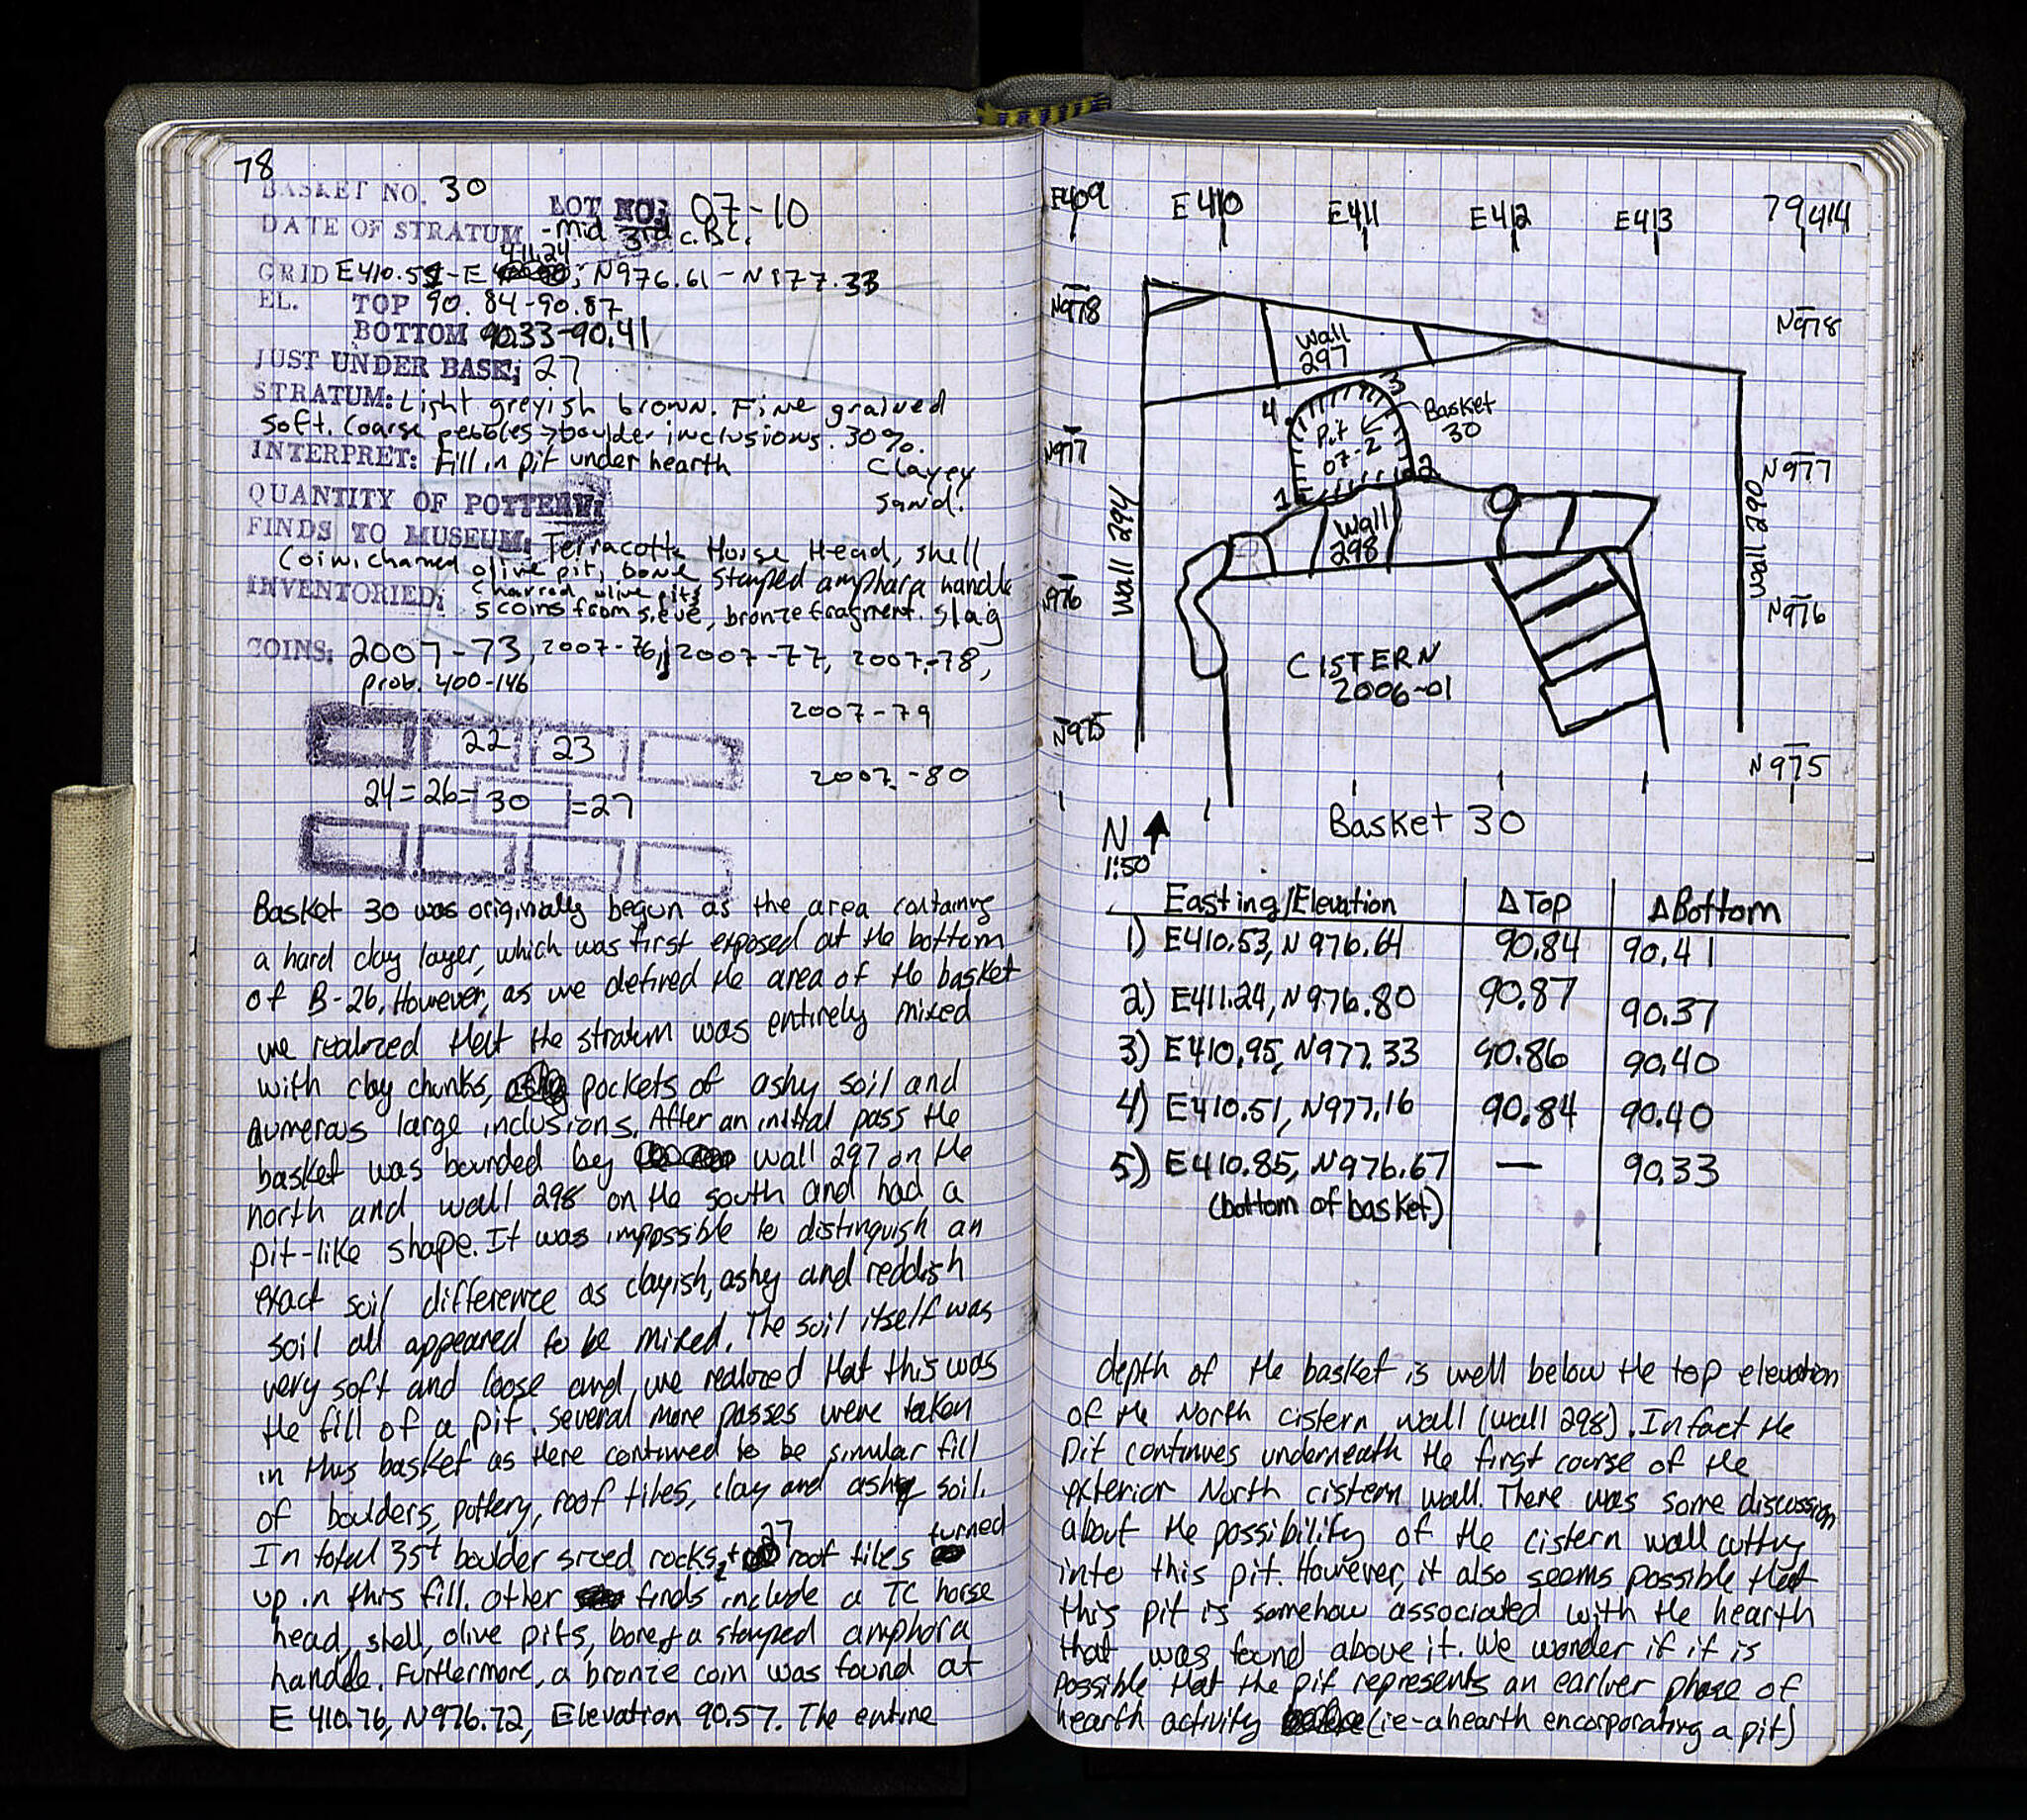 78
BASKET NO. 30
LOT NO: 07-10
DATE OF STRATUM -mid 3rd c.B.C.
411.24
GRID E410.51-E ; N976.61-N977.33
EL. TOP 90.84-90.87
BOTTOM 90.33-90.41
JUST UNDER BASK; 27
STRATUM: Light greyish brown. Fine grained
soft. Coarse pebbles → boulder inclusions. 30%.
Clayey
sand.
INTERPRET: Fill in pit under hearth
QUANTITY OF POTTERY:
FINDS TO MUSEUM: Terracotta Horse Head, shell
coin, charred olive pit, bone, stamped amphara handle
INVENTORIED: charred olive pits
5 coins from sieve, bronze fragment. Slag
COINS: 2007-73, 2007-76, 2007-77, 2007-78,
prob. 400-146
2007-79
22 23
2007-80
24=26=30=27
Basket 30 was originally begun as the area containing
a hard clay layer, which was first exposed at the bottom
of B-26. However, as we defined the area of the basket
we realized that the stratum was entirely mixed
with clay chunks, pockets of ashy soil and
numerous large inclusions. After an initial pass the
basket was bounded by wall 297 on the
north and wall 298 on the south and had a
pit-like shape. It was impossible to distinguish an
exact soil difference as clayish, ashy and reddish
soil all appeared to be mixed. The soil itself was
very soft and loose and, we realized that this was
the fill of a pit. Several more passes were taken
in this basket as there continued to be similar fill
of boulders, pottery, roof tiles, clay and ashy soil.
In total 35+ boulder sized rocks, + 27 roof tiles turned
up in this fill. Other finds include a TC horse
head, shell, olive pits, bone, + a stamped amphora
handle. Furthermore, a bronze coin was found at
E 410.76, N976.72, Elevation 90.57. The entire
79
E409 E410 E411 E412 E413 414
N978 N978
Wall
297
3
4
Basket
30
Pit
07-2
N977 N977
1 2
Wall 294
Wall
298
Wall 290
N976 N976
CISTERN
2006-01
N975 N975
N
1:50
Basket 30
Easting/Elevation Δ Top Δ Bottom
1) E410.53, N976.64 90.84 90.41
2) E411.24, N976.80 90.87 90.37
3) E410.95, N977.33 90.86 90.40
4) E410.51, N977.16 90.84 90.40
5) E410.85, N976.67 — 90.33
(bottom of basket)
depth of the basket is well below the top elevation
of the North cistern wall (wall 298). In fact the
pit continues underneath the first course of the
exterior North cistern wall. There was some discussion
about the possibility of the cistern wall cutting
into this pit. However, it also seems possible that
this pit is somehow associated with the hearth
that was found above it. We wonder if it is
possible that the pit represents an earlier phase of
hearth activity (ie-a hearth encorporating a pit)